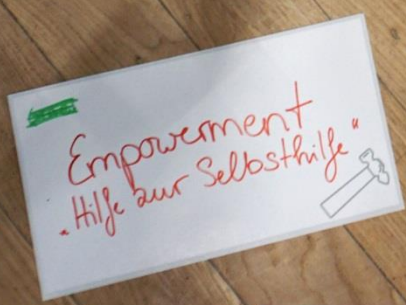 Empowerment
„Hilfe zur Selbsthilfe“